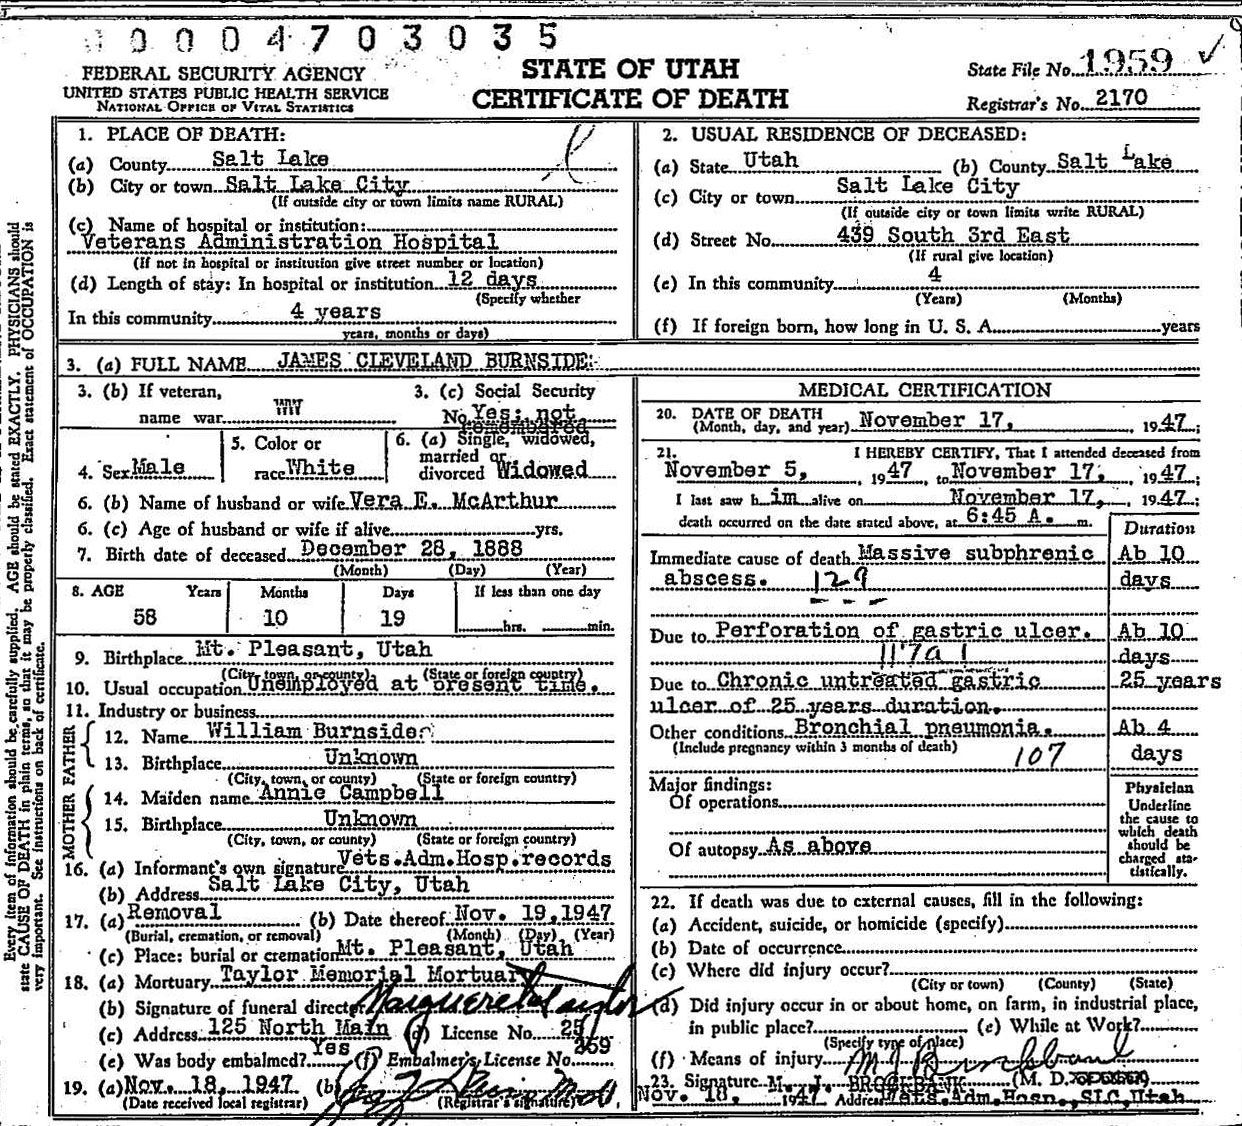 0004703035
FEDERAL SECURITY AGENCY
UNITED STATES PUBLIC HEALTH SERVICE
NATIONAL OFFICE OF VITAL STATISTICS
STATE OF UTAH
CERTIFICATE OF DEATH
State File No. 1959
Registrar's No. 2170
1. PLACE OF DEATH:
(a) County Salt Lake
(b) City or town Salt Lake City
(If outside city or town limits name RURAL)
(c) Name of hospital or institution:
Veterans Administration Hospital
(If not in hospital or institution give street number or location)
(d) Length of stay: In hospital or institution 12 days
(Specify whether
In this community 4 years
years, months or days)
2. USUAL RESIDENCE OF DECEASED:
(a) State Utah (b) County Salt Lake
(c) City or town Salt Lake City
(If outside city or town limits write RURAL)
(d) Street No. 439 South 3rd East
(If rural give location)
(e) In this community 4
(Years) (Months)
(f) If foreign born, how long in U. S. A. years
3. (a) FULL NAME JAMES CLEVELAND BURNSIDE
3. (b) If veteran,
name war
3. (c) Social Security
No. Yes; not
remembered
4. Sex Male
5. Color or
race White
6. (a) Single, widowed,
married or
divorced Widowed
6. (b) Name of husband or wife Vera E. McArthur
6. (c) Age of husband or wife if alive yrs.
7. Birth date of deceased December 28, 1888
(Month) (Day) (Year)
8. AGE Years Months Days If less than one day
58 10 19 hrs. min.
9. Birthplace Mt. Pleasant, Utah
(City, town, or county) (State or foreign country)
10. Usual occupation Unemployed at present time.
11. Industry or business
FATHER
12. Name William Burnside
13. Birthplace Unknown
(City, town, or county) (State or foreign country)
MOTHER
14. Maiden name Annie Campbell
15. Birthplace Unknown
(City, town, or county) (State or foreign country)
16. (a) Informant's own signature Vets.Adm.Hosp.records
(b) Address Salt Lake City, Utah
17. (a) Removal (b) Date thereof Nov. 19,1947
(Burial, cremation, or removal) (Month) (Day) (Year)
(c) Place: burial or cremation Mt. Pleasant, Utah
18. (a) Mortuary Taylor Memorial Mortuary
(b) Signature of funeral director
(c) Address 125 North Main (d) License No. 25
(e) Was body embalmed? Yes (f) Embalmer's License No. 259
19. (a) Nov. 18, 1947 (b)
(Date received local registrar) (Registrar's signature)
MEDICAL CERTIFICATION
20. DATE OF DEATH
(Month, day, and year) November 17, 1947;
21. I HEREBY CERTIFY, That I attended deceased from
November 5, 1947 to November 17, 1947;
I last saw him alive on November 17, 1947;
death occurred on the date stated above, at 6:45 A. m.
Duration
Immediate cause of death Massive subphrenic Ab 10
abscess. 129 days
Due to Perforation of gastric ulcer. Ab 10
117a1 days
Due to Chronic untreated gastric 25 years
ulcer of 25 years duration.
Other conditions Bronchial pneumonia. Ab 4
(Include pregnancy within 3 months of death) 107 days
Major findings:
Of operations
Of autopsy As above
Physician
Underline
the cause to
which death
should be
charged sta-
tistically.
22. If death was due to external causes, fill in the following:
(a) Accident, suicide, or homicide (specify)
(b) Date of occurrence
(c) Where did injury occur?
(City or town) (County) (State)
(d) Did injury occur in or about home, on farm, in industrial place,
in public place? (e) While at Work?
(Specify type of place)
(f) Means of injury
23. Signature M. J. BROCKBANK (M. D.
Nov. 18, 1947 Address Vets.Adm.Hosp.,SLC,Utah
Every item of information should be carefully supplied. AGE should be stated EXACTLY. PHYSICIANS should
state CAUSE OF DEATH in plain terms, so that it may be properly classified. Exact statement of OCCUPATION is
very important. See instructions on back of certificate.